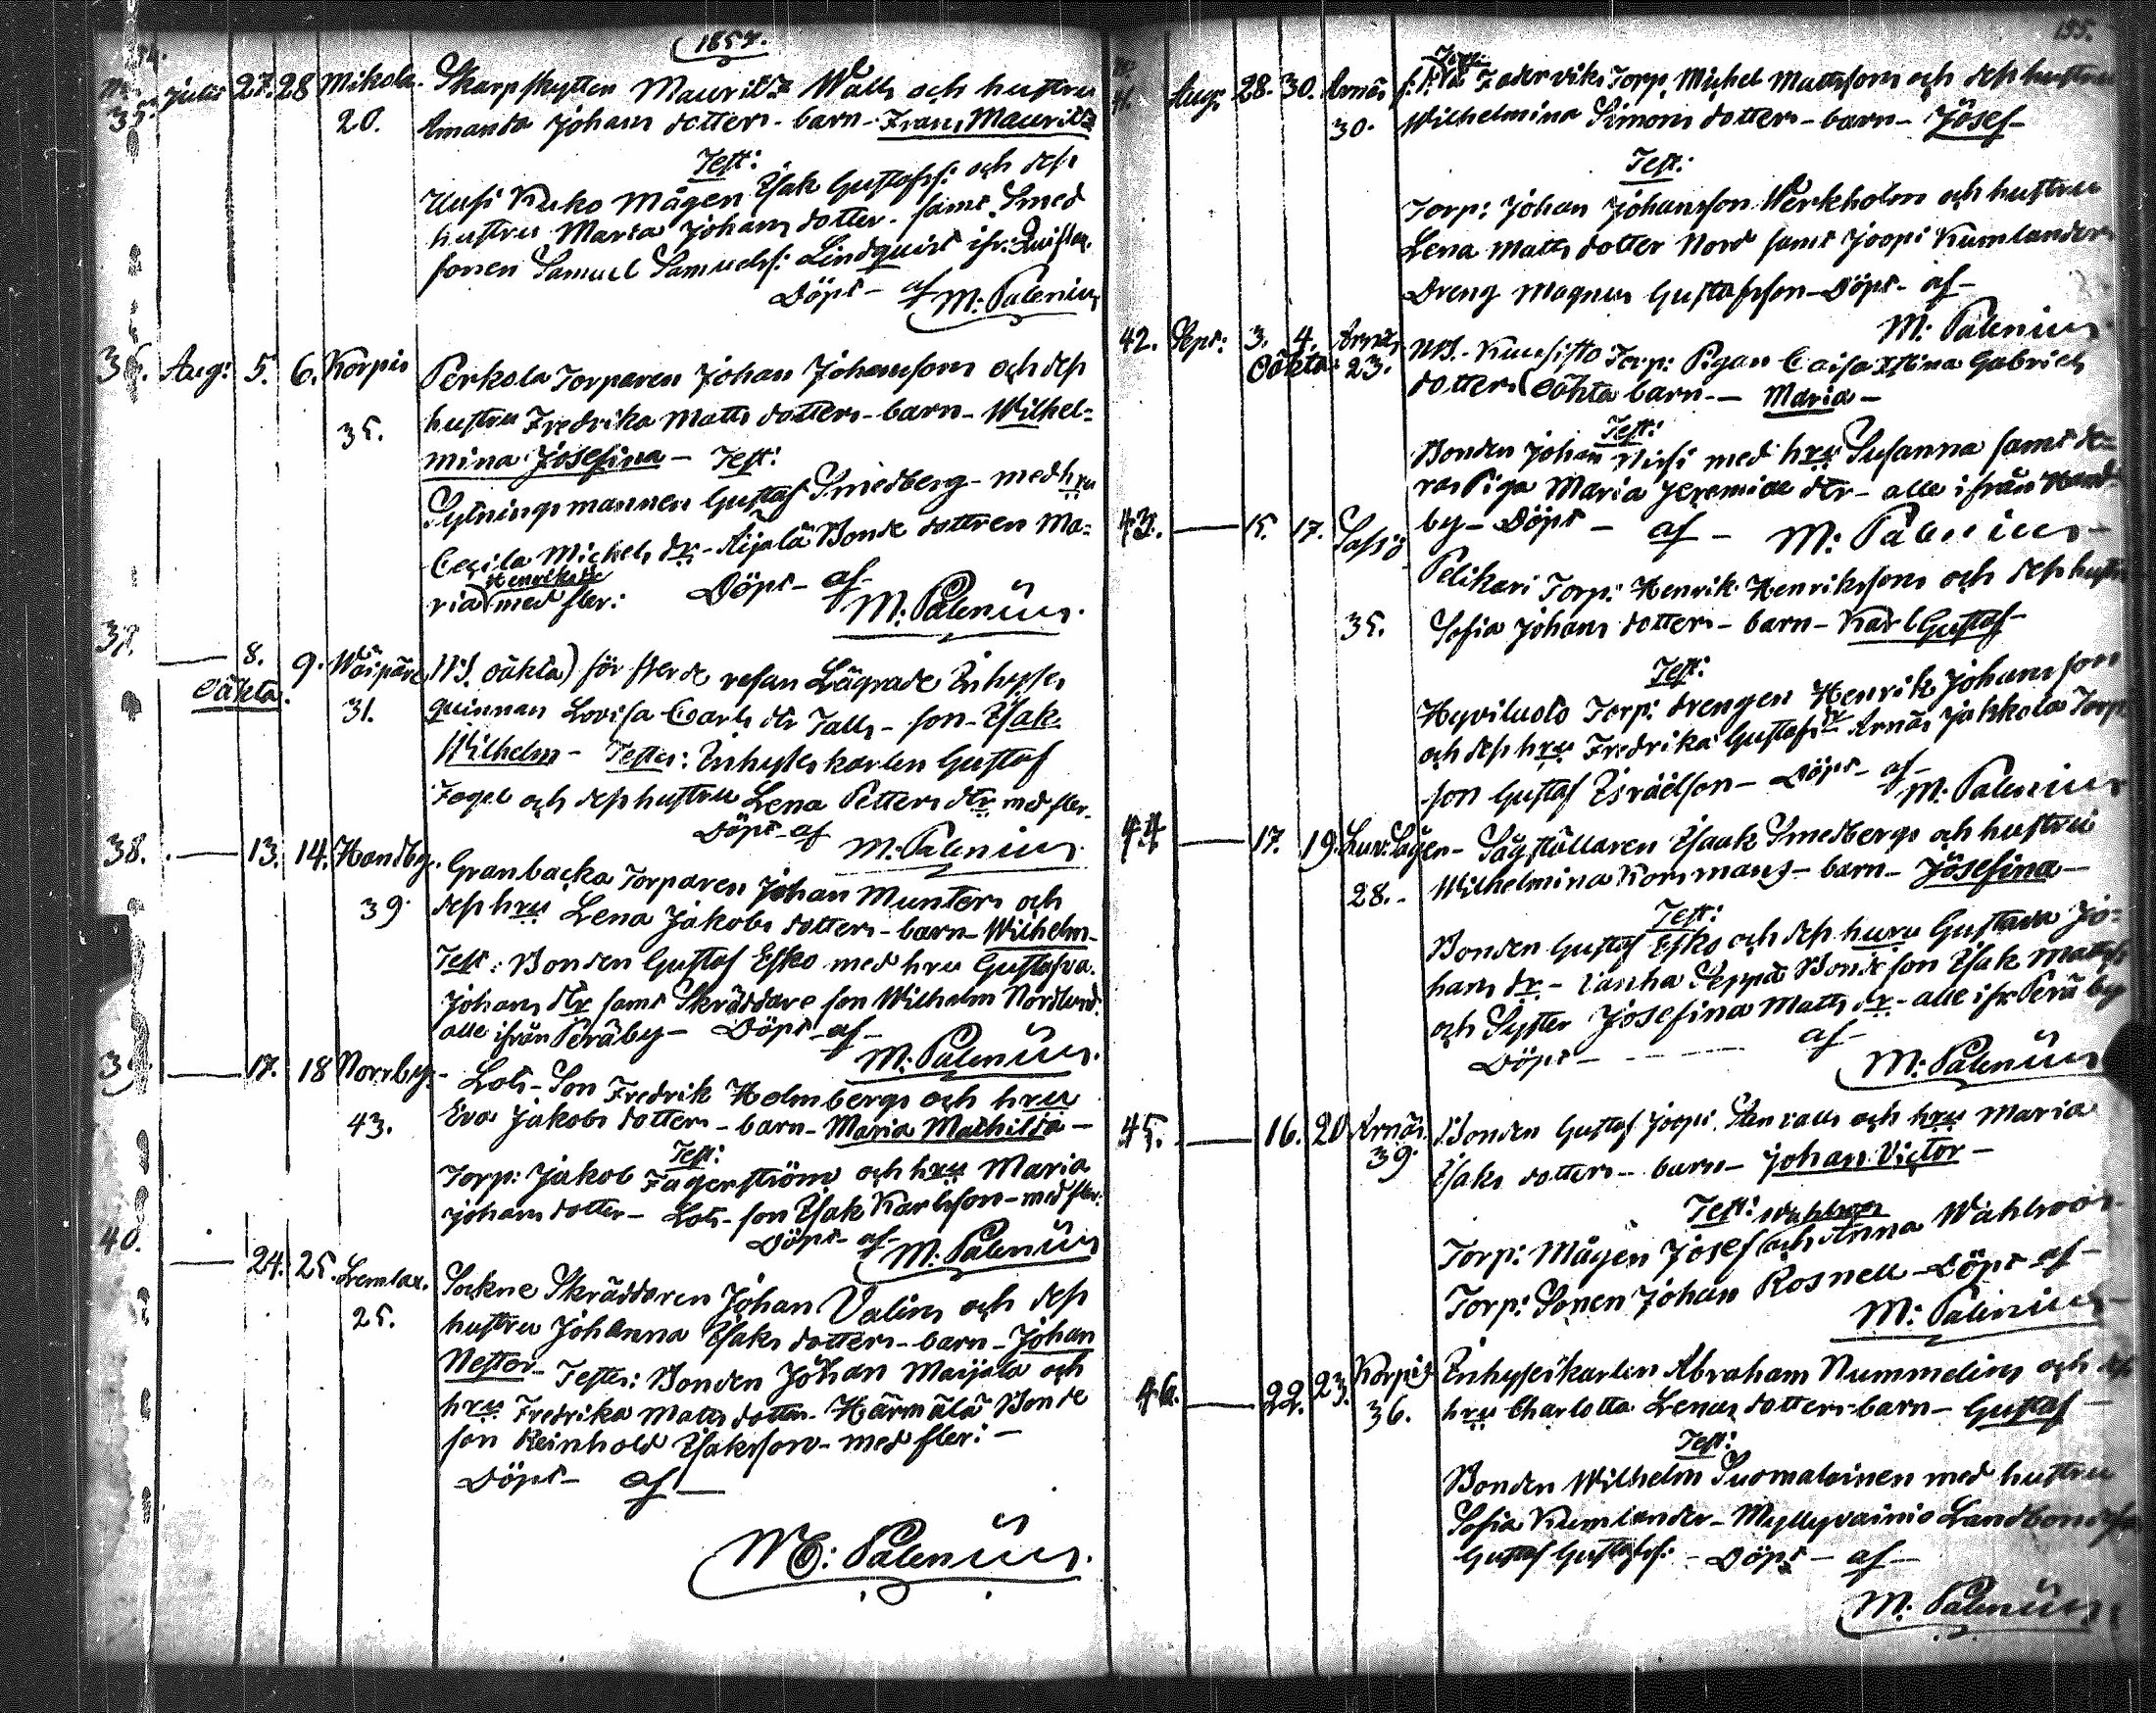 1857.
35. Julii 27. 28 Mikola. Skarpskytten Maurits Walls och hustru
20. Amanda Johans dotters - barn - Frans Maurits
Test:
Uusi Kuko Mågen Isak Gustafss: och dess
hustru Maria Johans dotter. samt Smed
sonen Samuel Samuelss: Lindquist ifr:
Döpt - af M: Palenius
36. Aug: 5. 6. Korpis Perkola Torparen Johan Johanssons och dess
35. hustru Fredrika Matts dotters - barn - Wilhel=
mina Josefina - Test:
Sytningsmannen Gustaf Smedberg - med hru
Cecila Michels dr - Äijälä Bonde dottren Ma=
Henriksdr
ria med fler: Döpt - af -
M: Palenius.
37. 8. 9. Waipäre N:3. oäkta) för resan Lägrade Inhyses
oäkta. 31. quinnan Lovisa Carls dtr Talls - son - Isak
Wilhelm - Testes: Inhyses karlen Gustaf
Fogel och dess hustru Lena Petters dtr med fler.
Döpt - af M: Palenius.
38. 13. 14. Handby. Granbacka Torparen Johan Munters och
39. dess hru Lena Jakobs dotters - barn - Wilhelm -
Test: Bonden Gustaf Esko med hru Gustafva.
Johans dtr samt Skräddare son Wilhelm Nordlund.
alle ifrån Peräby - Döpt - af -
M: Palenius.
39. 17. 18 Norrby - Lots - Son Fredrik Holmbergs och hru
43. Eva Jakobs dotters - barn - Maria Mathilda -
Test:
Torp: Jakob Fagerström och hru Maria
Johans dotter - Lots - son Isak Karlsson - med fler:
Döpt - af -
M: Palenius
40. 24. 25. Lemlax. Sockne Skräddaren Johan Valins och dess
25. hustru Johanna Isaks dotters - barn - Johan
Nestor - Testes: Bonden Johan Maijala och
hru Fredrika Matts dotter. Härmälä Bonde
son Reinhold Isaksson - med fler: -
Döpt - af -
M: Palenius.
155.
41. Aug: 28. 30. Arnäs Fadersviks Torp. Michel Mattssons och dess hustru
30. Wilhelmina Simons dotters - barn - Josef -
Test:
Torp: Johan Johansson Werkholm och hustru
Lena Matts dotter Nord samt Joopi Kumlander
Dreng Magnus Gustafsson - Döpt - af -
M: Palenius
42. Sept: 3. 4. Arnäs N:3. Kuusisto Torp: Pigan Caisa Stina Gabriels
Oäkta: 23. dotters oäkta barn. - Maria -
Test:
Bonden Johan med hru Susanna samt de=
ras Piga Maria Jeremiae dtr - alle ifrån Hand=
by - Döpt - af - M: Palenius -
43. 15. 17. Sassis Pelikari Torp: Henrik Henrikssons och dess hustru
35. Sofia Johans dotters - barn - Karl Gustaf -
Test:
Hyviluoto Torp: drengen Henrik Johansson
och dess hru Fredrika Gustafs dr Arnäs Jakkola Torp
son Gustaf Israelson - Döpt - af -
M: Palenius
44 17. 19. Sågen - Sågställaren Isaak Smedbergs och hustru
28. - Wilhelmina Kornmans - barn - Josefina -
Test:
Bonden Gustaf Esko och dess huru Gustava Jo=
hans dr - Seppä Bonde son Isak Matss
och Syster Josefina Matts dr - alle ifr Perä by
Döpt - - - - - af -
M: Palenius
45. 16. 20 Arnäs. Bonden Gustaf Joopi och hru Maria
39. Isaks dotters - barn - Johan Victor -
Test: Wahlroos
Torp: Mågen Josef och Anna Wahlroos
Torp: Sonen Johan Rosnell - Döpt - af -
M: Palenius -
46. 22. 23. Korpis Inhyseskarlen Abraham Nummelins och dess
36. hru Charlotta Lenas dotters - barn - Gustaf -
Test:
Bonden Wilhelm Suomalainen med hustru
Sofia Kumlander - Myllyvainio Landbonde
Gustaf Gustafss: - Döpt - af -
M: Palenius